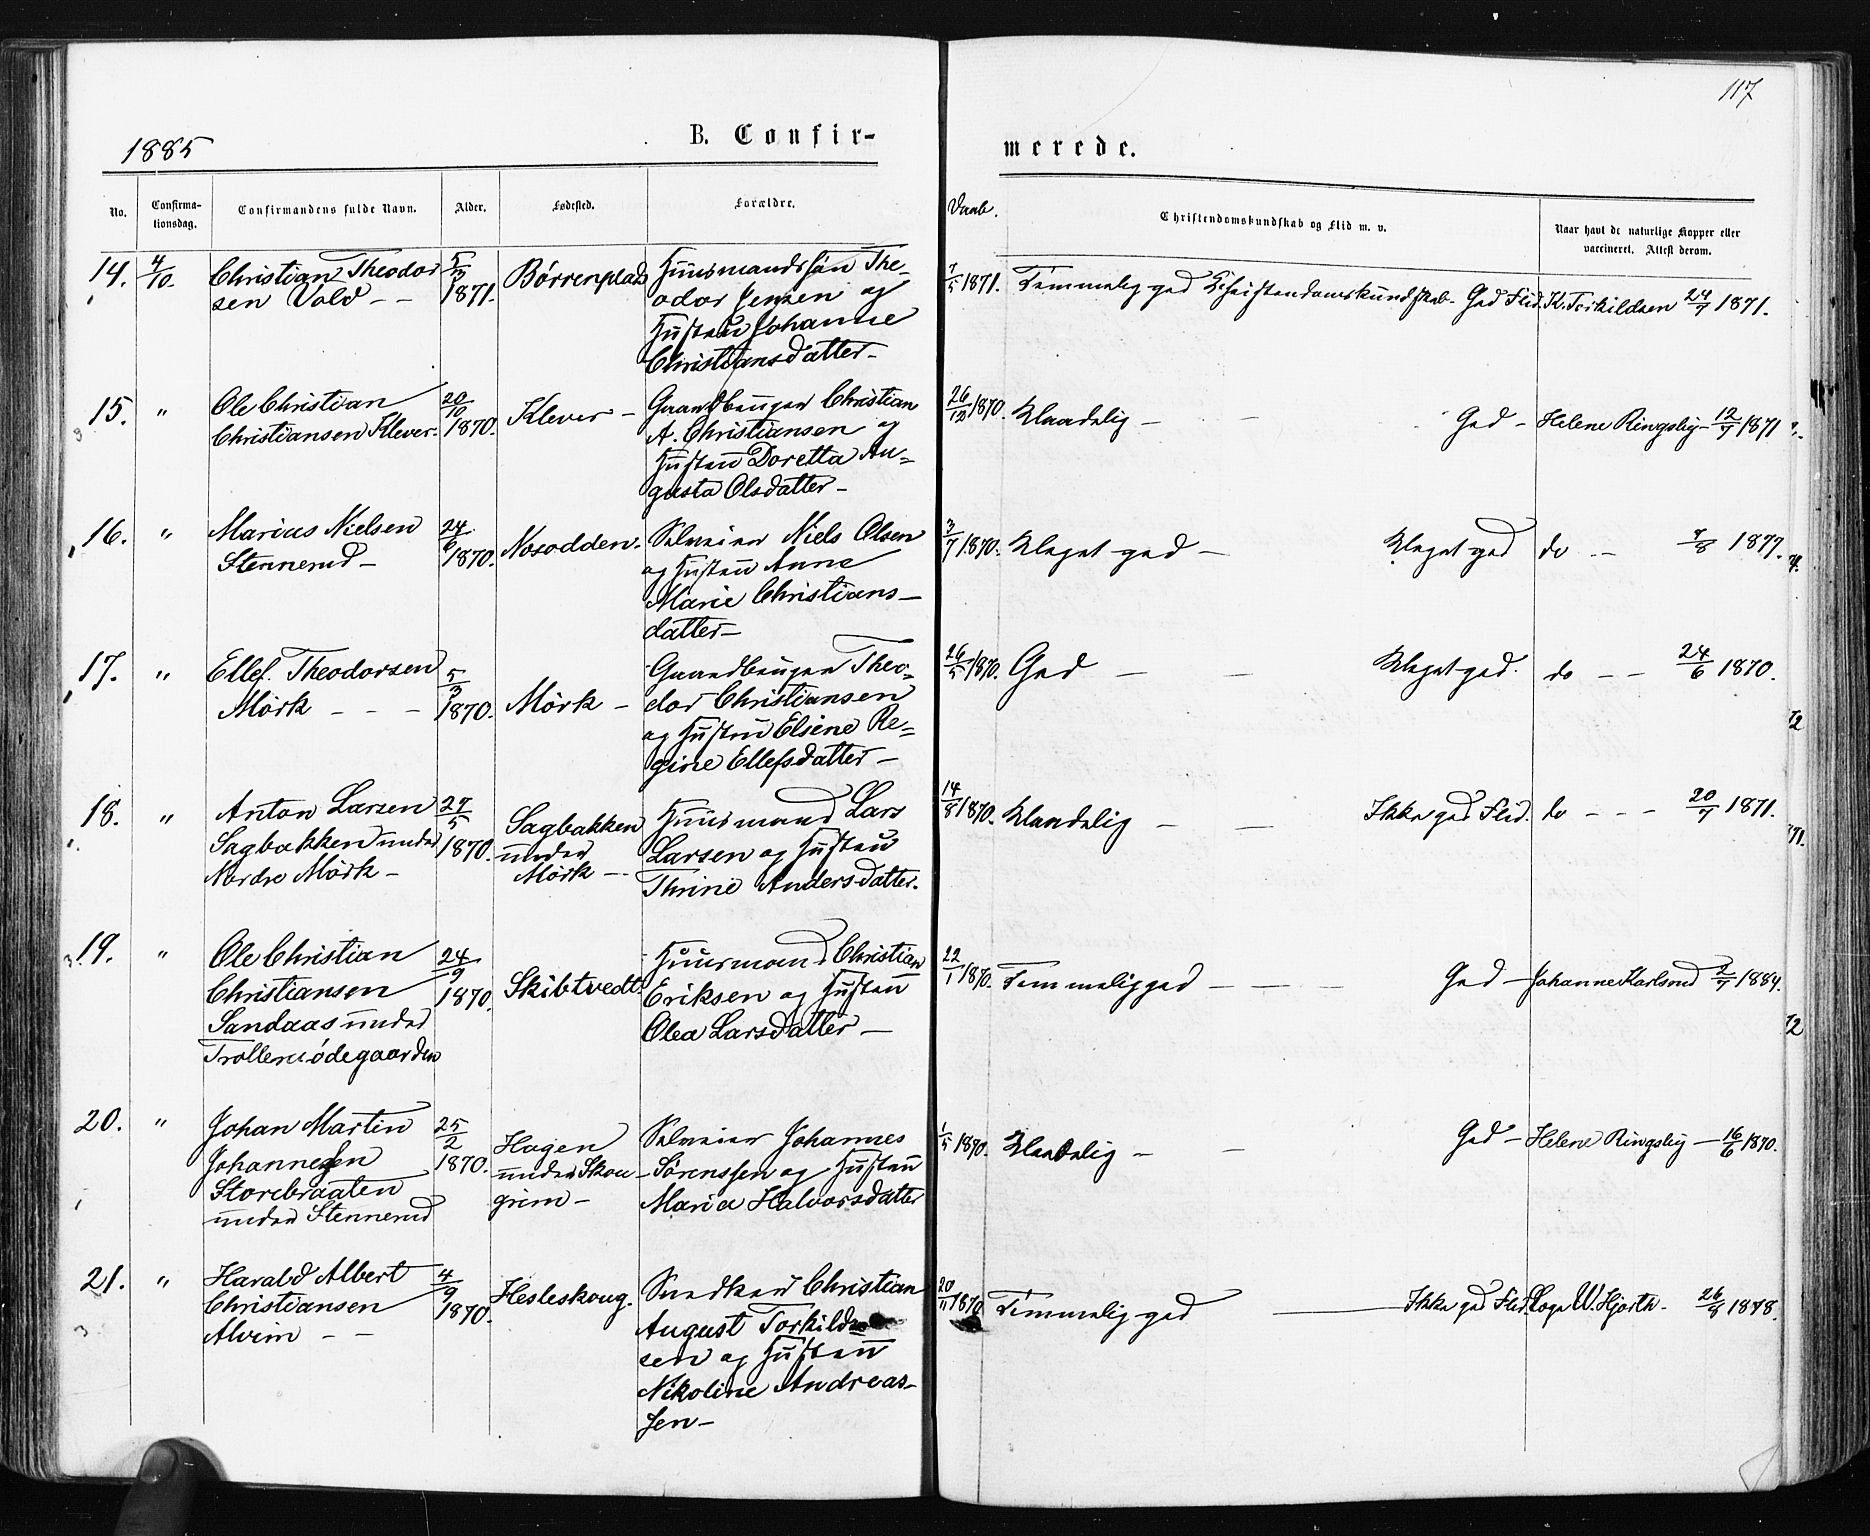 117
1885
B. Confir-
merede.
No.
Confirma-
tionsdag.
Confirmandens fulde Navn.
Alder.
Fødested.
Forældre.
Daab.
Christendomskundskab og Flid m. v.
Naar havt de naturlige Kopper eller
vaccineret. Attest derom.
14. 4/10. Christian Theodor
sen Vold - -
5/3
1871.
Børrenplads
Huusmandssøn The-
odor Jensen og
Hustru Johanne
Christiansdatter-
7/5 1871. Temmelig god Christendomskundskab. God Flid. K. Torkildsen 24/7 1871.
15. " Ole Christian
Christiansen Klever-
20/10
1870.
Klever -
Gaardbruger Christian
A. Christiansen og
Hustru Doretta Au-
gusta Olsdatter-
26/12 1870. Maadelig - - God - Helene Ringsby - 12/7 1871
16. " Marius Nielsen
Stennerud-
24/6
1870.
Nosodden-
Selveier Niels Olsen
og Hustru Anne
Marie Christians-
datter-
3/7 1870. Meget god - Meget god do - 7/8 1877.
17. " Ellef. Theodorsen
Mørk - - -
5/3
1870.
Mørk -
Gaardbruger Theo-
dor Christiansen
og Hustru Elsine Re-
gine Ellefsdatter-
26/5 1870. God - - Meget god. do - - 24/6 1870.
18. " Anton Larsen
Sagbakken under
Nordre Mørk-
27/5
1870.
Sagbakken
under
Mørk -
Huusmand Lars
Larsen og Hustru
Thrine Andersdatter.
14/8 1870. Maadelig - - Ikke god Flid. do - - - 20/7 1871.
19. " Ole Christian
Christiansen
Sandaas under
Trollerudødegaarden
24/9
1870.
Skibtvedt.
Huusmand Christian
Eriksen og Hustru
Olea Larsdatter-
22/1 1870. Temmelig god - - - God - Johanne Karlsrud 2/7 1884.
20. " Johan Martin
Johannessen
Storebraaten
under Stennerud
25/2
1870.
Hagen
under Skou
grim-
Selveier Johannes
Sørenssen og Hustru
Maria Halvorsdatter
1/5 1870. Maadelig - - God - Helene Ringsby - 16/6 1870.
21. " Harald Albert
Christiansen
Alvim - -
4/9
1870.
Hesleskoug.
Snedker Christian
August Torkild
sen og Hustru
Nikoline Andreas-
sen-
20/11 1870. Temmelig god - Ikke god Flid. W. Hjorth. 26/8 1878.